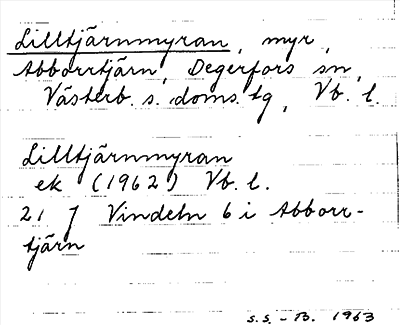 Lilltjärnmyran, myr,
Abborrtjärn, Degerfors sn,
Västerb. s. doms. tg, Vb. l.
Lilltjärnmyran
ek (1962) Vb. l.
21 J Vindeln 6 i Abborr-
tjärn
S.S. - B. 1963